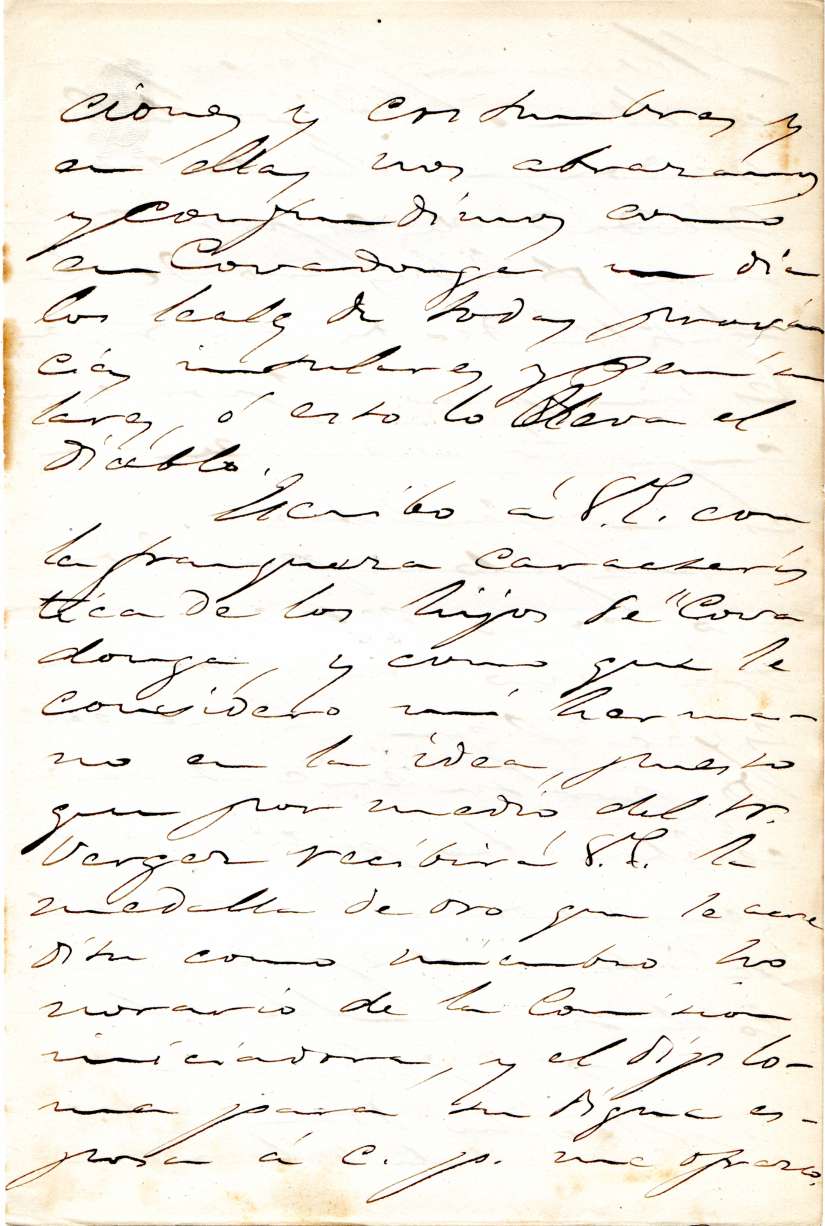 ciones y costumbres y
en ellas nos abrazámos
y confundímos como
en Covadonga un dia
los leales de todas provin
cias insulares y Penínsu
lares, ó esto lo lleva el
Diablo.
Escribo á S.E. con
la franqueza caracterís
tica de los hijos de "Cova
donga, y como que le
considero mi herma-
no en la idea, puesto
que por medio del Sr.
Verger recibirá S.E. la
medalla de oro que le acre
dita como miembro ho
norario de la Comision
iniciadora, y el diplo-
ma para su digna es-
posa á c. p. me ofrezco.